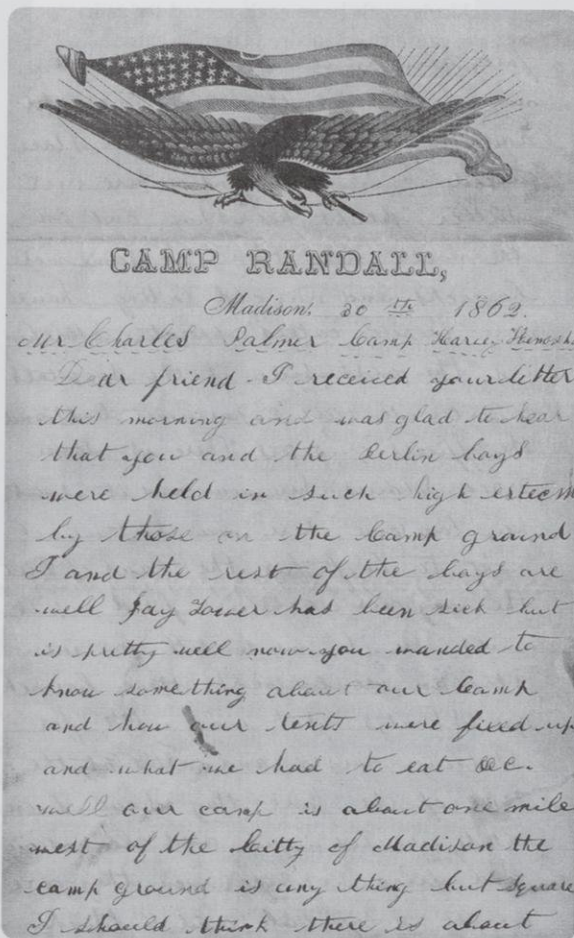 CAMP RANDALL,
Madison. 30 th 1862.
Mr Charles Palmer Camp
Dear friend - I received your letter
this morning and was glad to hear
that you and the Berlin boys
were held in such high esteem
by those on the Camp ground
I and the rest of the boys are
well Jay Tower has been sick but
is pretty well now you wanded to
know something about our Camp
and how our tents were fixed up
and what we had to eat &c.
well our camp is about one mile
west of the Citty of Madison the
camp ground is any thing but square
I should think there is about